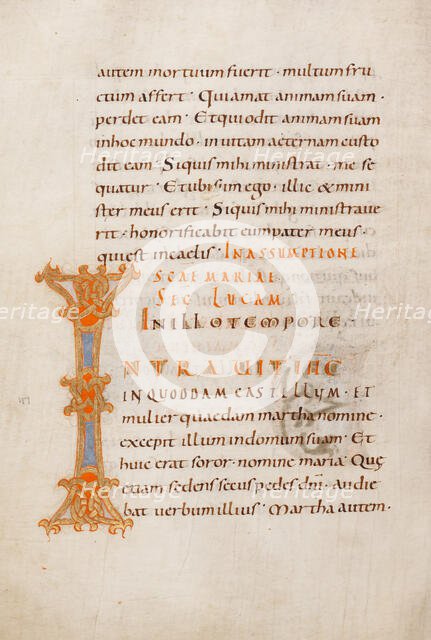 autem mortuum fuerit · multum fru
ctum affert · Qui amat animam suam ·
perdet eam · Et qui odit animam suam
in hoc mundo · in vitam aeternam custo
dit eam · Si quis mihi ministrat · me se
quatur · Et ubi sum ego · illic & mini
ster meus erit · Si quis mihi ministrave
rit · honorificabit eum pater meus ·
qui est in caelis · IN ASSUMPTIONE
SCAE MARIAE
SEC LUCAM
IN ILLO TEMPORE
INTRAVIT IHC
IN QUODDAM CASTELLUM · ET
mulier quaedam martha nomine ·
excepit illum in domum suam · Et
huic erat soror · nomine maria · Quę
etiam sedens secus pedes dni · audie
bat verbum illius · Martha autem ·
Heritage